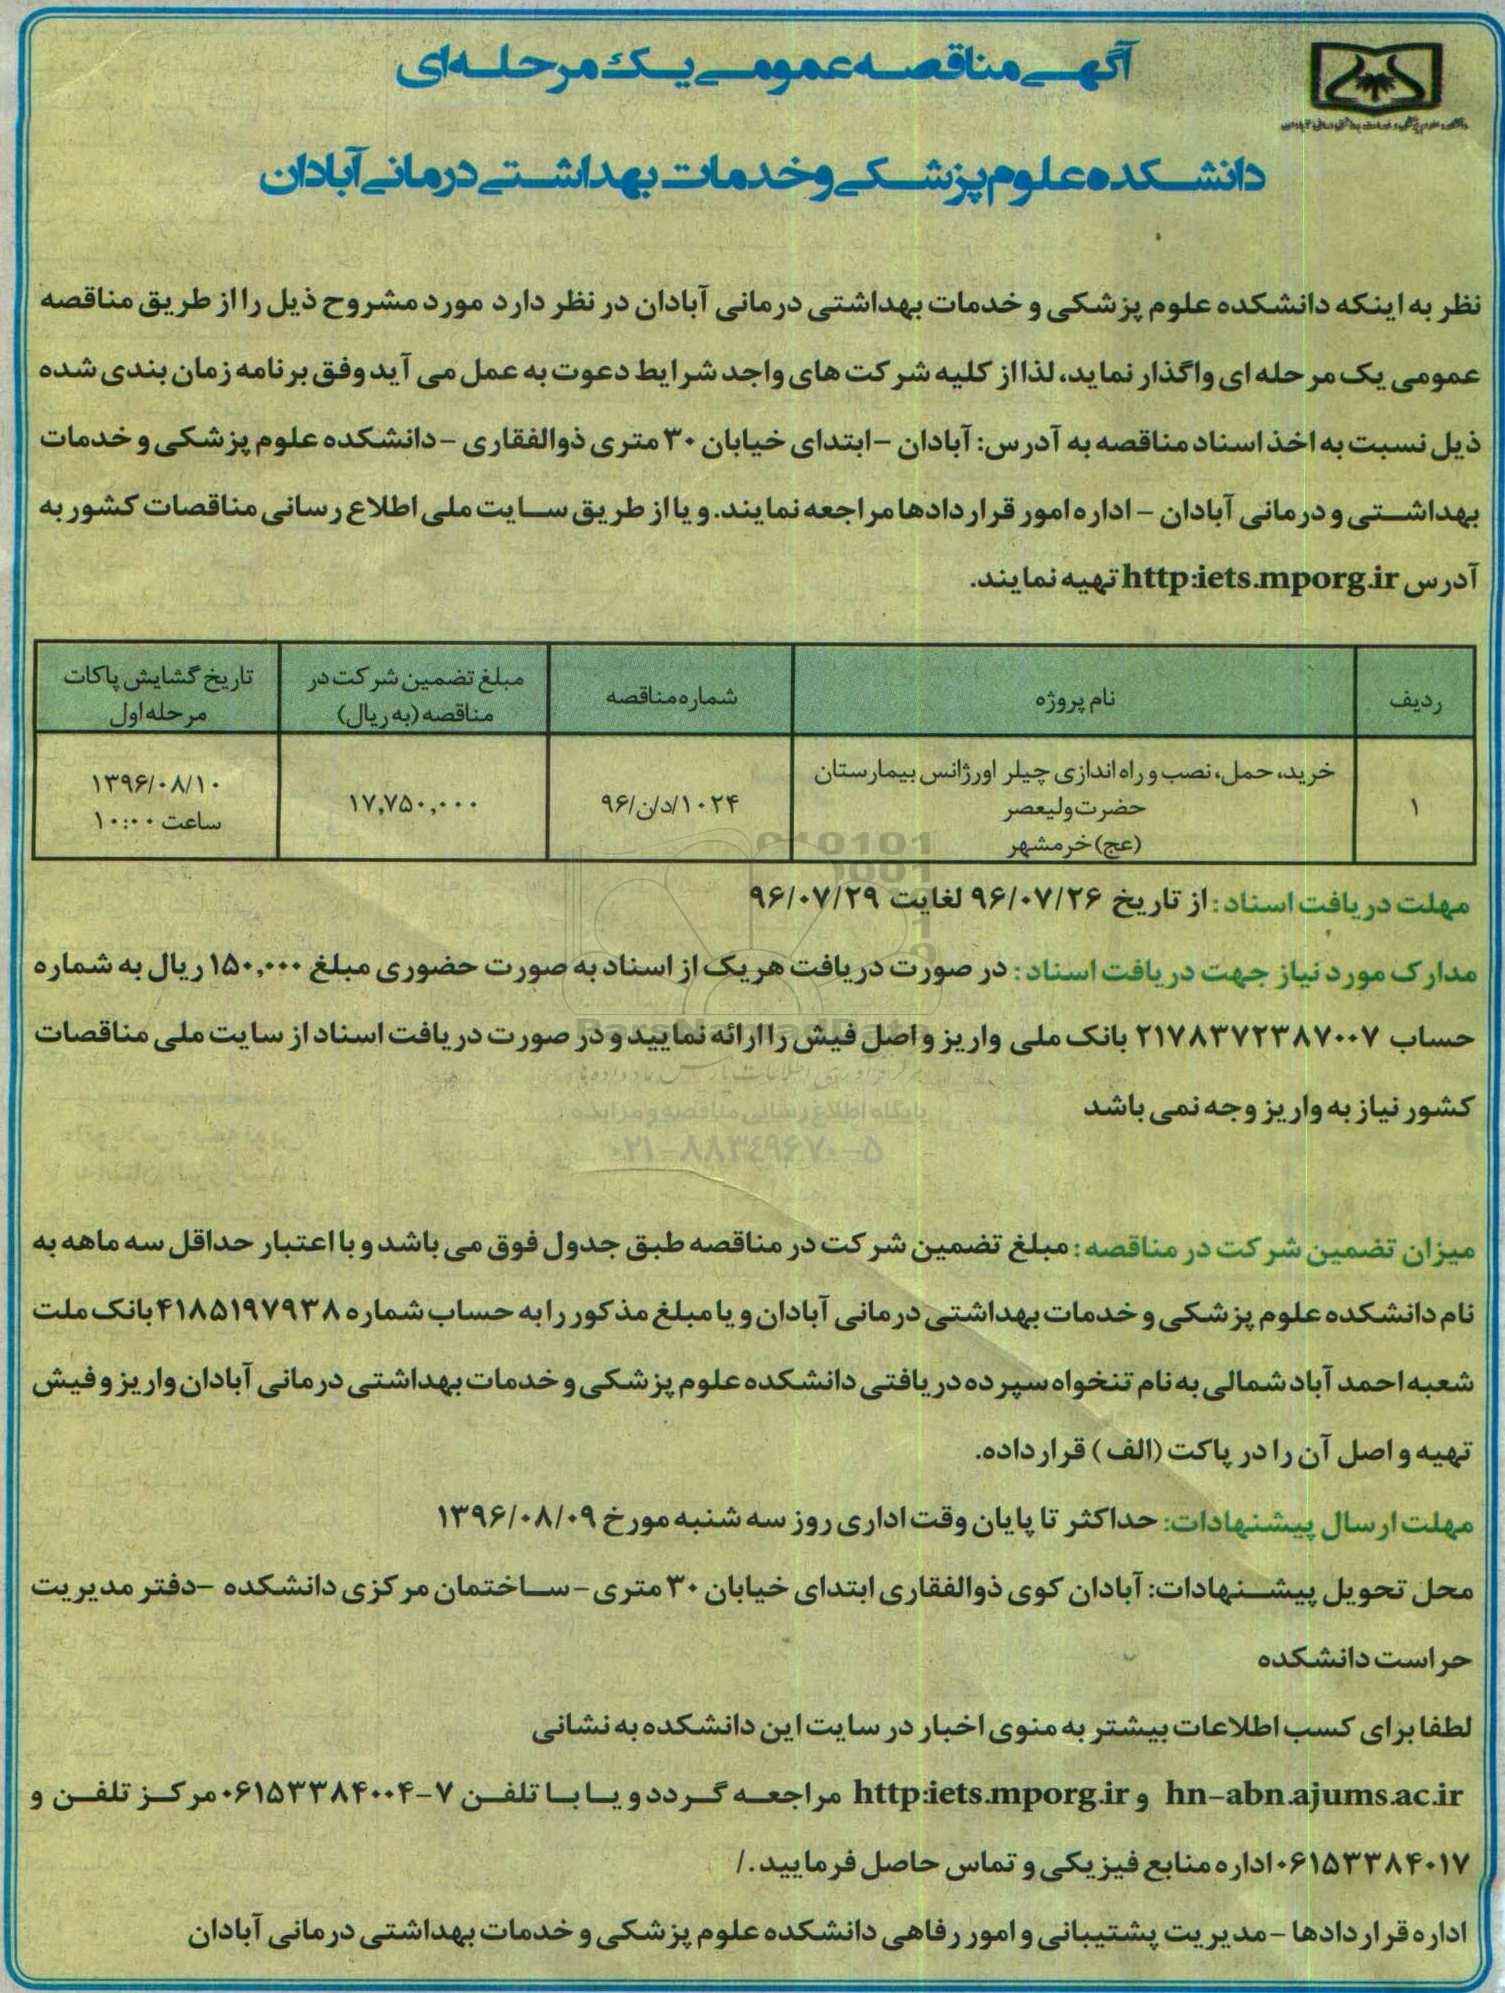 آگهی مناقصه عمومی یک مرحله‌ای
دانشکده علوم پزشکی و خدمات بهداشتی درمانی آبادان
نظر به اینکه دانشکده علوم پزشکی و خدمات بهداشتی درمانی آبادان در نظر دارد مورد مشروح ذیل را از طریق مناقصه
عمومی یک مرحله ای واگذار نماید، لذا از کلیه شرکت های واجد شرایط دعوت به عمل می آید وفق برنامه زمان بندی شده
ذیل نسبت به اخذ اسناد مناقصه به آدرس: آبادان -ابتدای خیابان ۳۰ متری ذوالفقاری -دانشکده علوم پزشکی و خدمات
بهداشتی و درمانی آبادان - اداره امور قراردادها مراجعه نمایند. و یا از طریق سایت ملی اطلاع رسانی مناقصات کشور به
آدرس http:iets.mporg.ir تهیه نمایند.
ردیف
نام پروژه
شماره مناقصه
مبلغ تضمین شرکت در
مناقصه (به ریال)
تاریخ گشایش پاکات
مرحله اول
۱
خرید، حمل، نصب و راه اندازی چیلر اورژانس بیمارستان
حضرت ولیعصر
(عج) خرمشهر
۱۰۲۴/د/ن/۹۶
۱۷,۷۵۰,۰۰۰
۱۳۹۶/۰۸/۱۰
ساعت ۱۰:۰۰
مهلت دریافت اسناد: از تاریخ ۹۶/۰۷/۲۶ لغایت ۹۶/۰۷/۲۹
مدارک مورد نیاز جهت دریافت اسناد: در صورت دریافت هر یک از اسناد به صورت حضوری مبلغ ۱۵۰,۰۰۰ ریال به شماره
حساب ۲۱۷۸۳۷۲۳۸۷۰۰۷ بانک ملی واریز و اصل فیش را ارائه نمایید و در صورت دریافت اسناد از سایت ملی مناقصات
کشور نیاز به واریز وجه نمی باشد
پایگاه اطلاع رسانی مناقصه و مزایده
۰۲۱-۸۸۳۴۹۶۷۰-۵
میزان تضمین شرکت در مناقصه: مبلغ تضمین شرکت در مناقصه طبق جدول فوق می باشد و با اعتبار حداقل سه ماهه به
نام دانشکده علوم پزشکی و خدمات بهداشتی درمانی آبادان و یا مبلغ مذکور را به حساب شماره ۴۱۸۵۱۹۷۹۳۸ بانک ملت
شعبه احمد آباد شمالی به نام تنخواه سپرده دریافتی دانشکده علوم پزشکی و خدمات بهداشتی درمانی آبادان واریز و فیش
تهیه و اصل آن را در پاکت (الف) قرار داده.
مهلت ارسال پیشنهادات: حداکثر تا پایان وقت اداری روز سه شنبه مورخ ۱۳۹۶/۰۸/۰۹
محل تحویل پیشنهادات: آبادان کوی ذوالفقاری ابتدای خیابان ۳۰ متری -ساختمان مرکزی دانشکده -دفتر مدیریت
حراست دانشکده
لطفا برای کسب اطلاعات بیشتر به منوی اخبار در سایت این دانشکده به نشانی
hn-abn.ajums.ac.ir و http:iets.mporg.ir مراجعه گردد و یا با تلفن ۷-۰۶۱۵۳۳۸۴۰۰۴ مرکز تلفن و
۰۶۱۵۳۳۸۴۰۱۷ اداره منابع فیزیکی و تماس حاصل فرمایید./
اداره قراردادها -مدیریت پشتیبانی و امور رفاهی دانشکده علوم پزشکی و خدمات بهداشتی درمانی آبادان